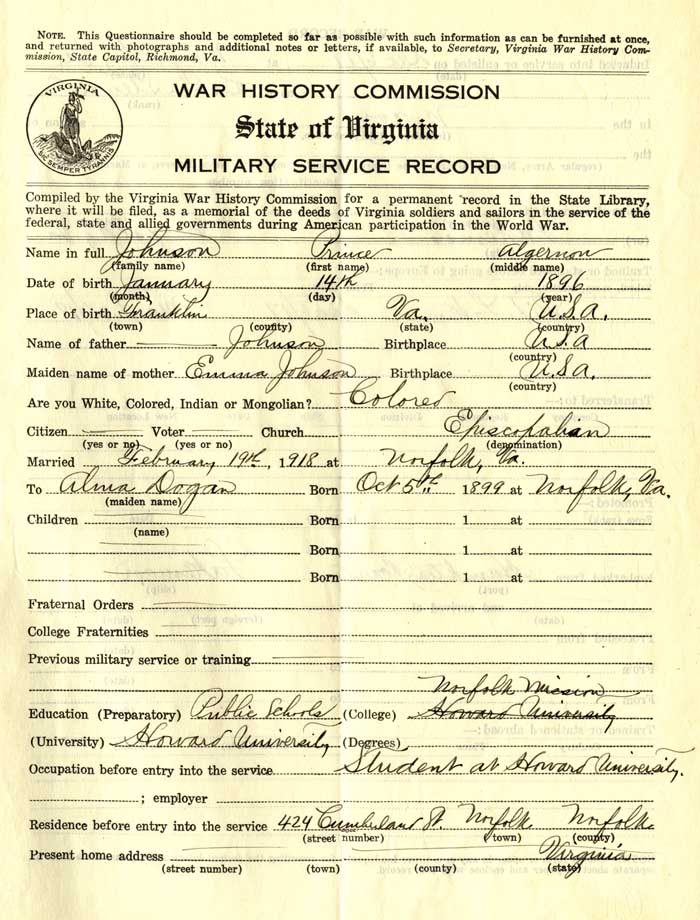 NOTE. This Questionnaire should be completed so far as possible with such information as can be furnished at once,
and returned with photographs and additional notes or letters, if available, to Secretary, Virginia War History Com-
mission, State Capitol, Richmond, Va.
VIRGINIA
SIC SEMPER TYRANNIS
WAR HISTORY COMMISSION
State of Virginia
MILITARY SERVICE RECORD
Compiled by the Virginia War History Commission for a permanent record in the State Library,
where it will be filed, as a memorial of the deeds of Virginia soldiers and sailors in the service of the
federal, state and allied governments during American participation in the World War.
Name in full Johnson Prince Algernon
(family name) (first name) (middle name)
Date of birth January 14th 1896
(month) (day) (year)
Place of birth Franklin Va. U.S.A.
(town) (county) (state) (country)
Name of father Johnson Birthplace U.S.A
(country)
Maiden name of mother Emma Johnson Birthplace U.S.A.
(country)
Are you White, Colored, Indian or Mongolian? Colored
Citizen Voter Church Episcopalian
(yes or no) (yes or no) (denomination)
Married February 19th, 1918 at Norfolk, Va.
To Alma Dogan Born Oct 5th 1899 at Norfolk, Va.
(maiden name)
Children Born 1 at
(name)
Born 1 at
Born 1 at
Fraternal Orders
College Fraternities
Previous military service or training
Norfolk Mission
Education (Preparatory) Public Schools (College) Howard University
(University) Howard University (Degrees)
Occupation before entry into the service Student at Howard University.
; employer
Residence before entry into the service 424 Cumberland St. Norfolk Norfolk
(street number) (town) (county)
Present home address Virginia
(street number) (town) (county) (state)